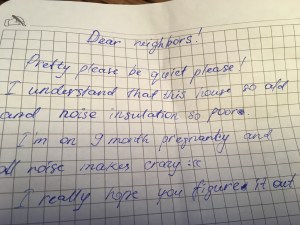 Dear neighbors!
Pretty please be quiet please!
I understand that this house so old
and noise insulation so poor.
I'm on 9 month pregnanty and
all noise makes crazy :c
I really hope you figure it out